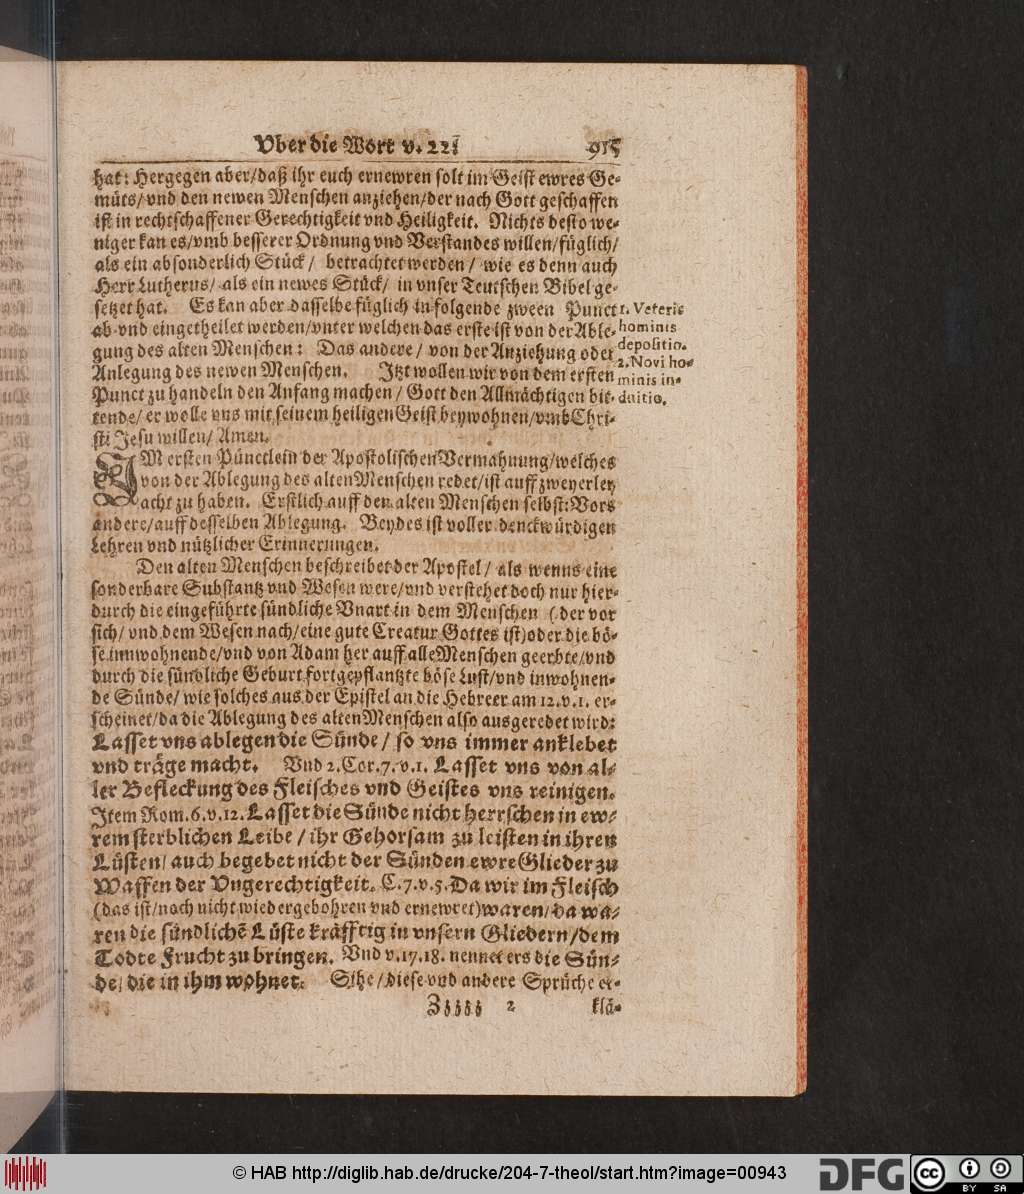 Vber die Wort v. 22.
915
hat: Hergegen aber/daß ihr euch ernewren solt im Geist ewres Ge-
müts/vnd den newen Menschen anziehen/der nach Gott geschaffen
ist in rechtschaffener Gerechtigkeit vnd Heiligkeit. Nichts desto we-
niger kan es/vmb besserer Ordnung vnd Verstandes willen/füglich/
als ein absonderlich Stück/ betrachtet werden/ wie es denn auch
Herr Lutherus/ als ein newes Stück/ in vnser Teutschen Bibel ge-
setzet hat. Es kan aber dasselbe füglich in folgende zween Punct
ab vnd eingetheilet werden/vnter welchen das erste ist von der Able-
gung des alten Menschen: Das andere/ von der Anziehung oder
Anlegung des newen Menschen. Jtzt wollen wir von dem ersten
Punct zu handeln den Anfang machen/ Gott den Allmächtigen bit-
tende/ er wolle vns mit seinem heiligen Geist beywohnen/vmb Chri-
sti Jesu willen/ Amen.
1. Veteris
hominis
depositio.
2. Novi ho-
minis in-
duitio.
JM ersten Pünctlein der Apostolischen Vermahnung/welches
von der Ablegung des alten Menschen redet/ist auff zweyerley
acht zu haben. Erstlich auff den alten Menschen selbst: Vors
andere/auff desselben Ablegung. Beydes ist voller denckwürdigen
Lehren vnd nützlicher Erinnerungen.
Den alten Menschen beschreibet der Apostel/ als wenns eine
sonderbare Substantz vnd Wesen were/vnd verstehet doch nur hier-
durch die eingeführte sündliche Vnart in dem Menschen (der vor
sich/ vnd dem Wesen nach/eine gute Creatur Gottes ist) oder die bö-
se innwohnende/vnd von Adam her auff alle Menschen geerbte/vnd
durch die sündliche Geburt fortgepflantzte böse Lust/vnd inwohnen-
de Sünde/ wie solches aus der Epistel an die Hebreer am 12. v. 1. er-
scheinet/da die Ablegung des alten Menschen also ausgeredet wird:
Lasset vns ablegen die Sünde/ so vns immer anklebet
vnd träge macht. Vnd 2. Cor. 7. v. 1. Lasset vns von al-
ler Befleckung des Fleisches vnd Geistes vns reinigen.
Item Rom. 6. v. 12. Lasset die Sünde nicht herrschen in ew-
rem sterblichen Leibe/ ihr Gehorsam zu leisten in ihren
Lüsten/ auch begebet nicht der Sünden ewre Glieder zu
Waffen der Vngerechtigkeit. C. 7. v. 5. Da wir im Fleisch
(das ist/noch nicht wiedergebohren vnd ernewret) waren/ da wa-
ren die sündlichẽ Lüste kräfftig in vnsern Gliedern/dem
Todte Frucht zu bringen. Vnd v. 17. 18. nennet ers die Sün-
de/ die in ihm wohnet. Sihe/ diese vnd andere Sprüche er-
Zzzzz 2
klä-
© HAB http://diglib.hab.de/drucke/204-7-theol/start.htm?image=00943
DFG
cc
BY SA